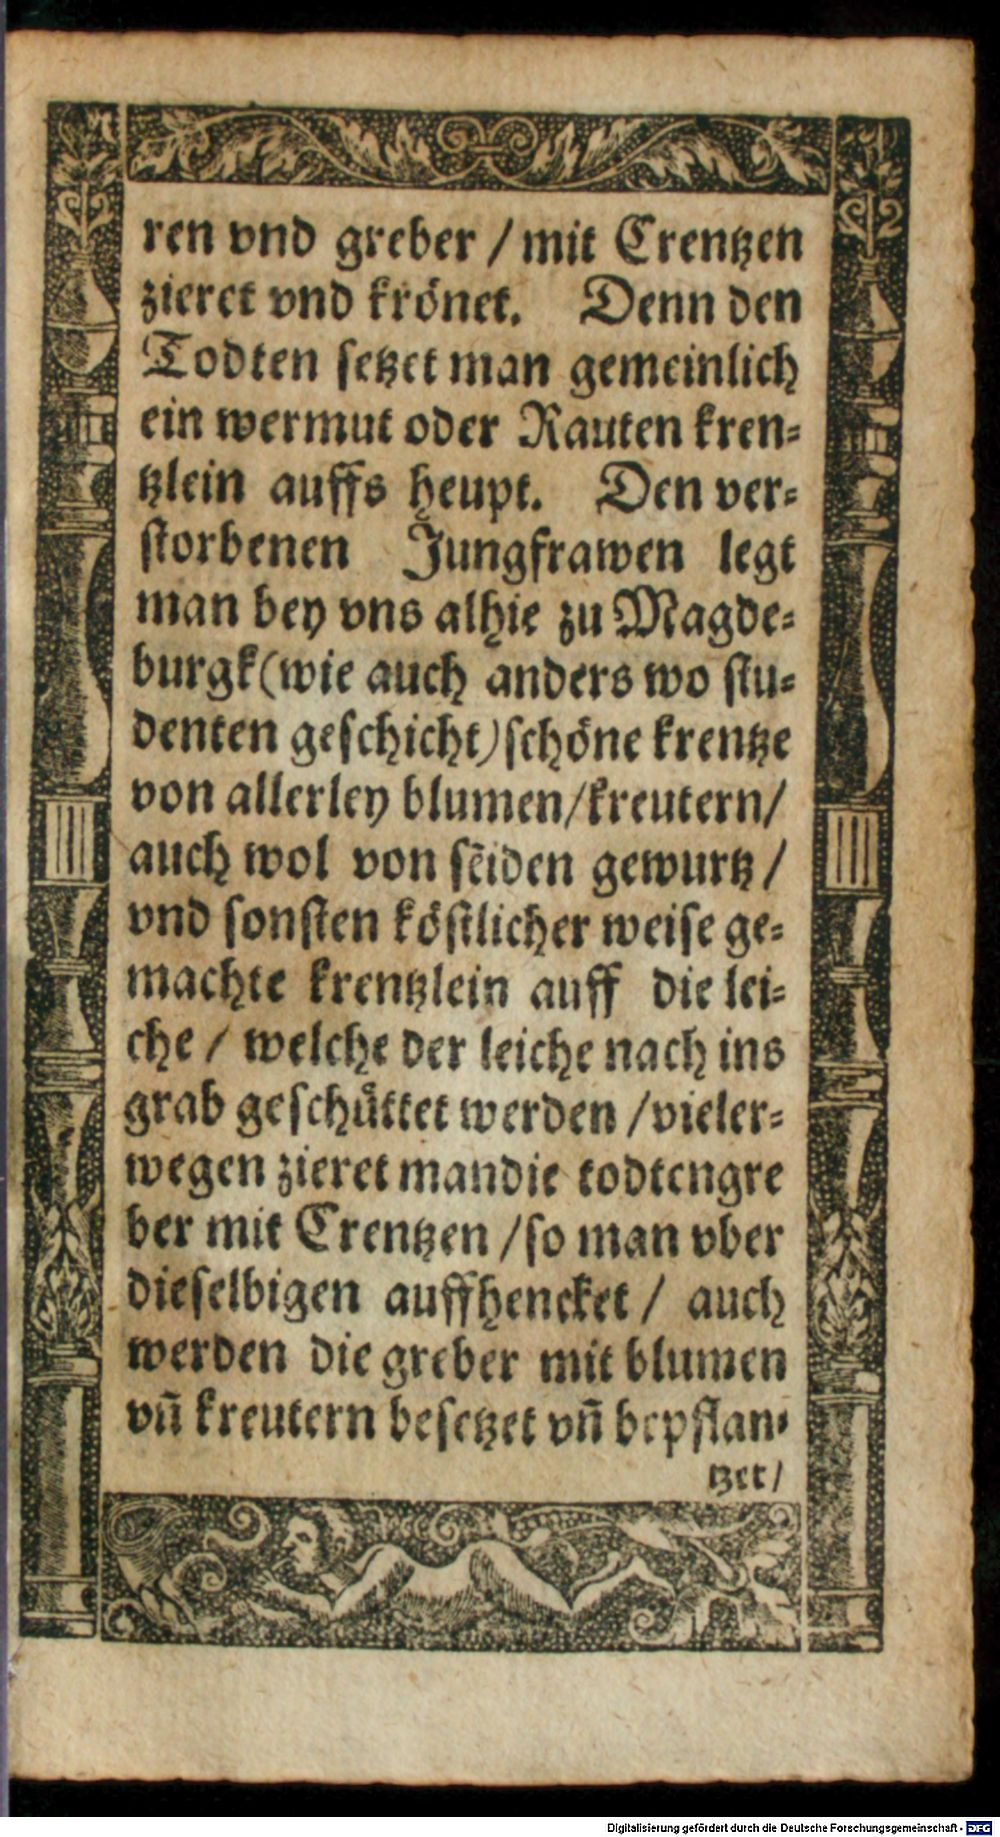 ren vnd greber / mit Crentzen
zieret vnd krönet. Denn den
Todten setzet man gemeinlich
ein wermut oder Rauten kren⸗
tzlein auffs heupt. Den ver⸗
storbenen Jungfrawen legt
man bey vns alhie zu Magde⸗
burgk (wie auch anders wo stu⸗
denten geschicht) schöne krentze
von allerley blumen / kreutern /
auch wol von seiden gewurtz /
vnd sonsten köstlicher weise ge⸗
machte krentzlein auff die lei⸗
che / welche der leiche nach ins
grab geschüttet werden / vieler⸗
wegen zieret mandie todtengre
ber mit Crentzen / so man vber
dieselbigen auffhencket / auch
werden die greber mit blumen
vñ kreutern besetzet vñ bepflan⸗
tzet /
Digitalisierung gefördert durch die Deutsche Forschungsgemeinschaft - DFG